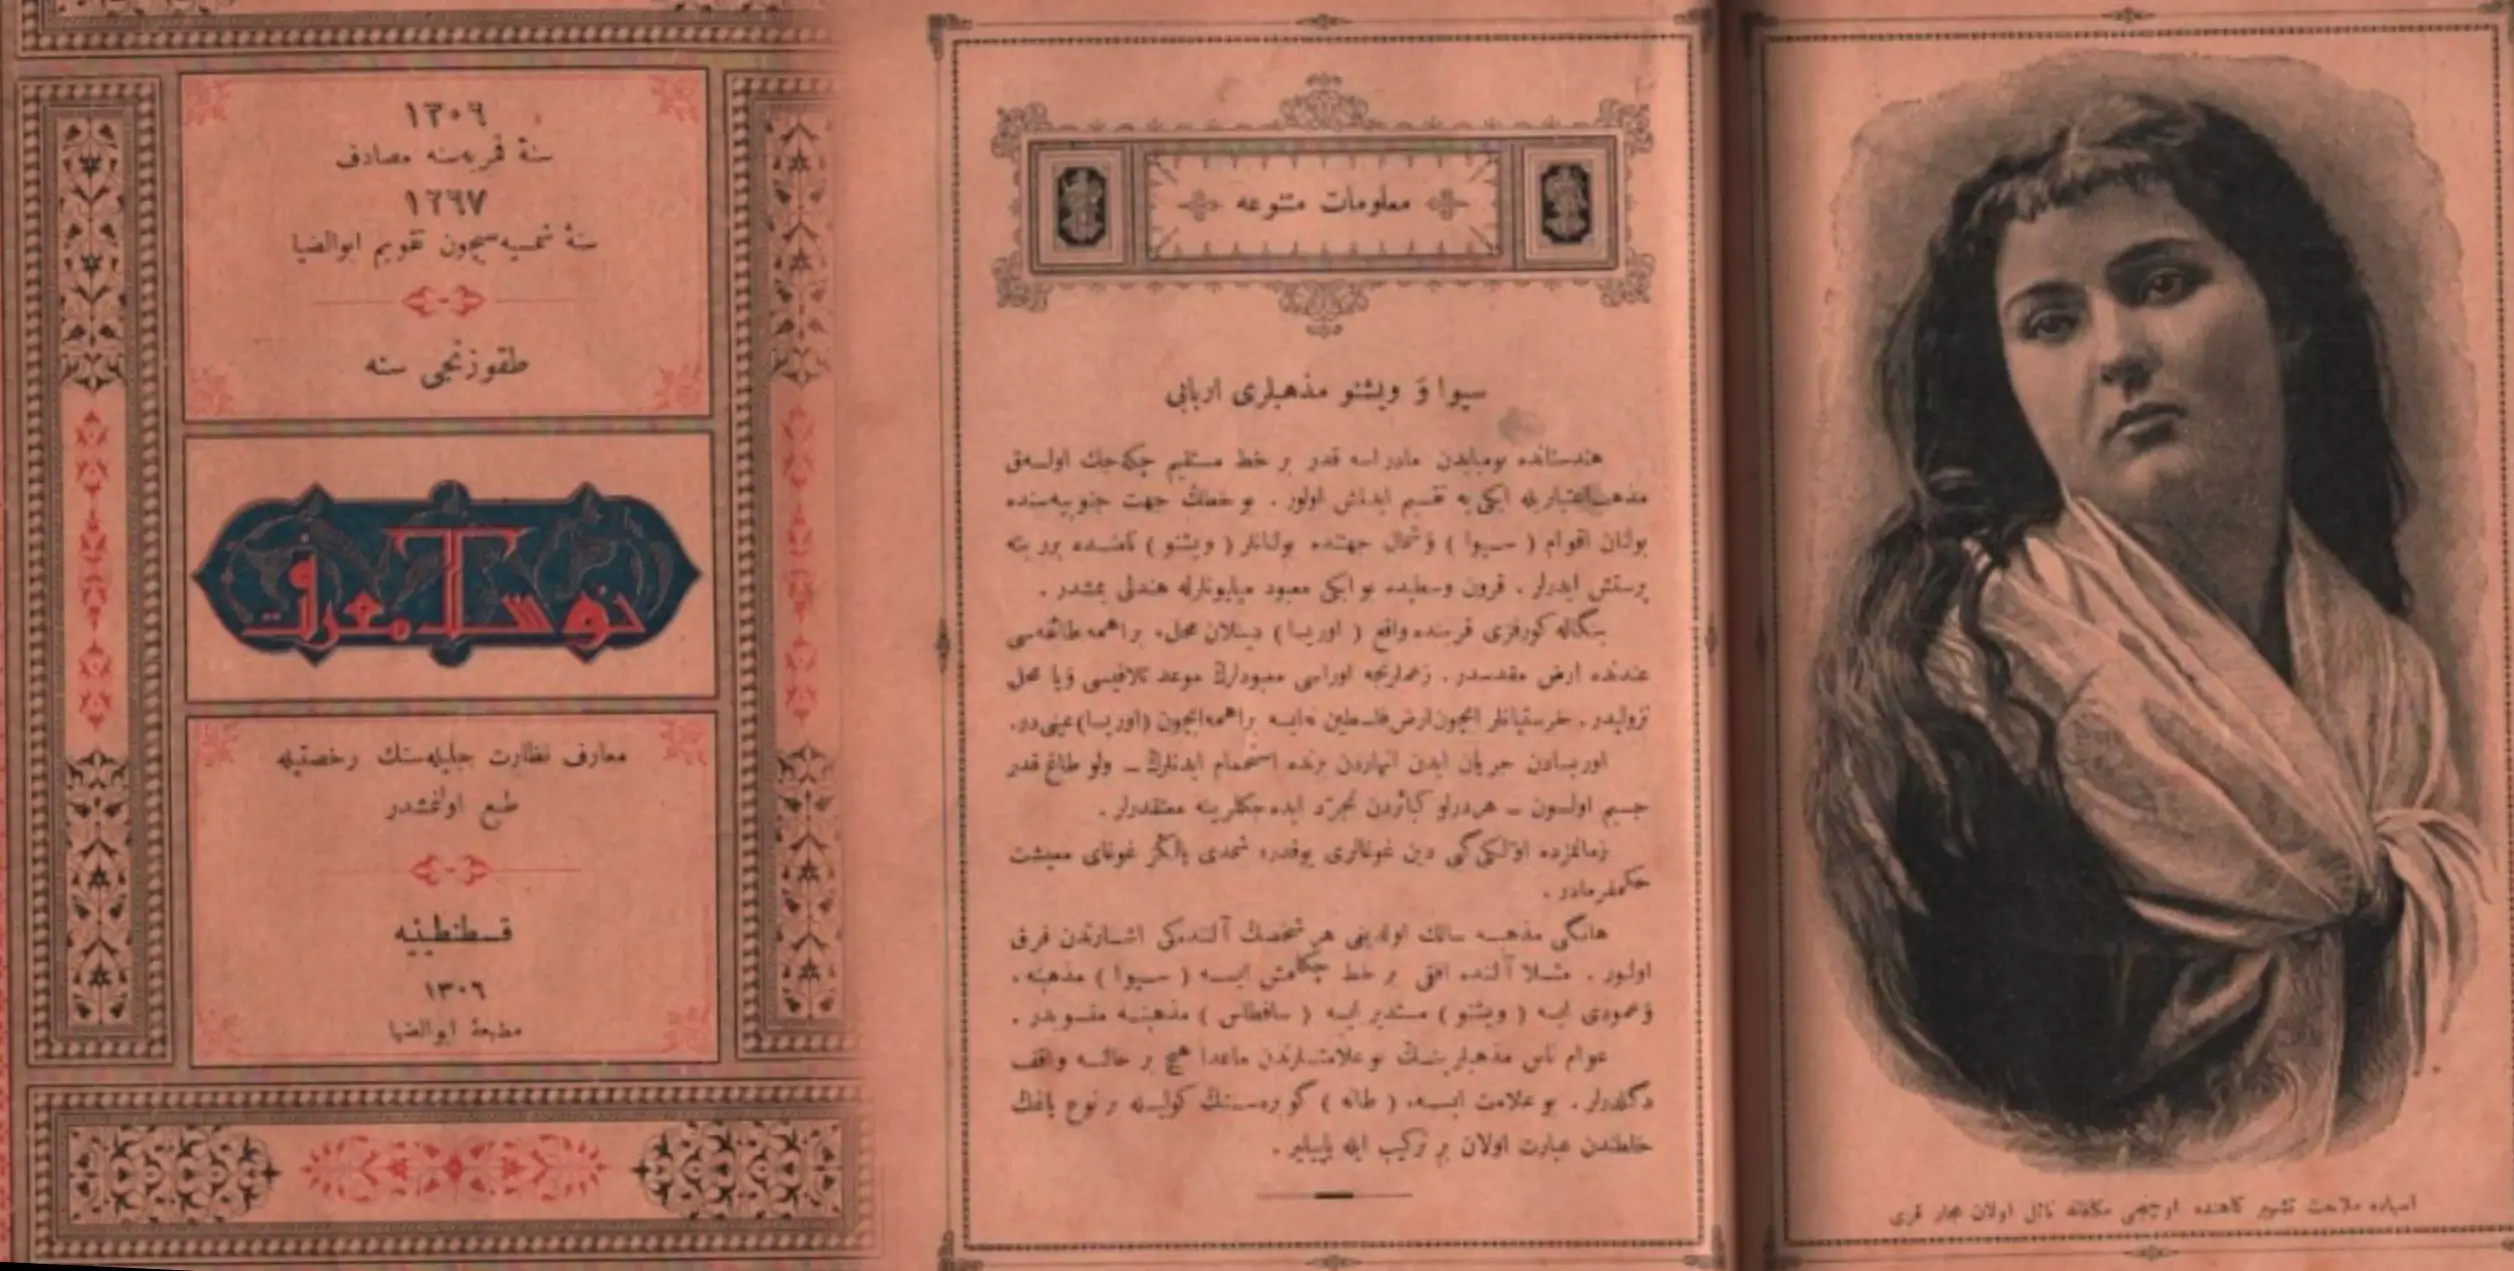 ١٣٠٦
سنهٔ قمریه‌سنه مصادف
١٢٦٧
سنهٔ شمسیه‌سیچون تقویم ابوالضیا
طقوزنجی سنه
نوسال معرفت
معارف نظارت جلیله‌سنك رخصتیله
طبع اولنمشدر
قسطنطینیه
١٣٠٦
مطبعهٔ ابوالضیا
معلومات متنوعه
سیوا و ویشنو مذهبلری اربابی
هندستانده بومبایدن مادراسه قدر بر خط مستقیم چكه‌جك اولسه‌ق
مذهب اعتباریله ایكی‌یه تقسیم ایدلمش اولور . بو خطك جهت جنوبیه‌سنده
بولنان اقوام ( سیوا ) و شمال جهتنده بولنانلر ( ویشنو ) نامنده برربته
پرستش ایدرلر . قرون وسطیده بو ایكی معبود میلیونلرله هندلی یمشدر .
بنگاله كورفزی قربنده واقع ( اوریسا ) دینلان محل، براهمه طائفه‌سی
عندنده ارض مقدسدر . زعملرنجه اوراسی معبودلرڭ موعد تلاقیسی ویا محل
نزولیدر . خرستیانلر ایچون ارض فلسطین نه‌ایسه براهمه ایچون (اوریسا) عینی‌در.
اوریسادن جریان ایدن انهاردن برنده استحمام ایدنلرڭ ــ ولو طاغ قدر
جسیم اولسون ــ هردرلو كبائردن تجرد ایده‌جكلرینه معتقددرلر .
زمانمزده اولكی كبی دین غوغالری یوقدر، شمدی یالكز غوغای معیشت
حكمفرمادر .
هانگی مذهبه سالك اولدیغی هر شخصك آلنده‌كی اشارتدن فرق
اولنور . مثلا آلنده افقی بر خط چكلمش ایسه ( سیوا ) مذهبنه ،
و عمودی ایسه ( ویشنو ) مستدیر ایسه ( سافطاس ) مذهبنه منسوبدر .
عوام ناس مذهبلرینك بو علامتلرندن ماعدا هیچ بر حالنه واقف
دگلدرلر . بو علامت ایسه، ( طانه ) گوبره‌سنك كولیله بر نوع بالغك
خلطندن عبارت اولان بر تركیب ایله یاپیلیر .
اسپاده ملاحت تشهیر كاهنده اوچنجی مكافاته نائل اولان مجار قزی